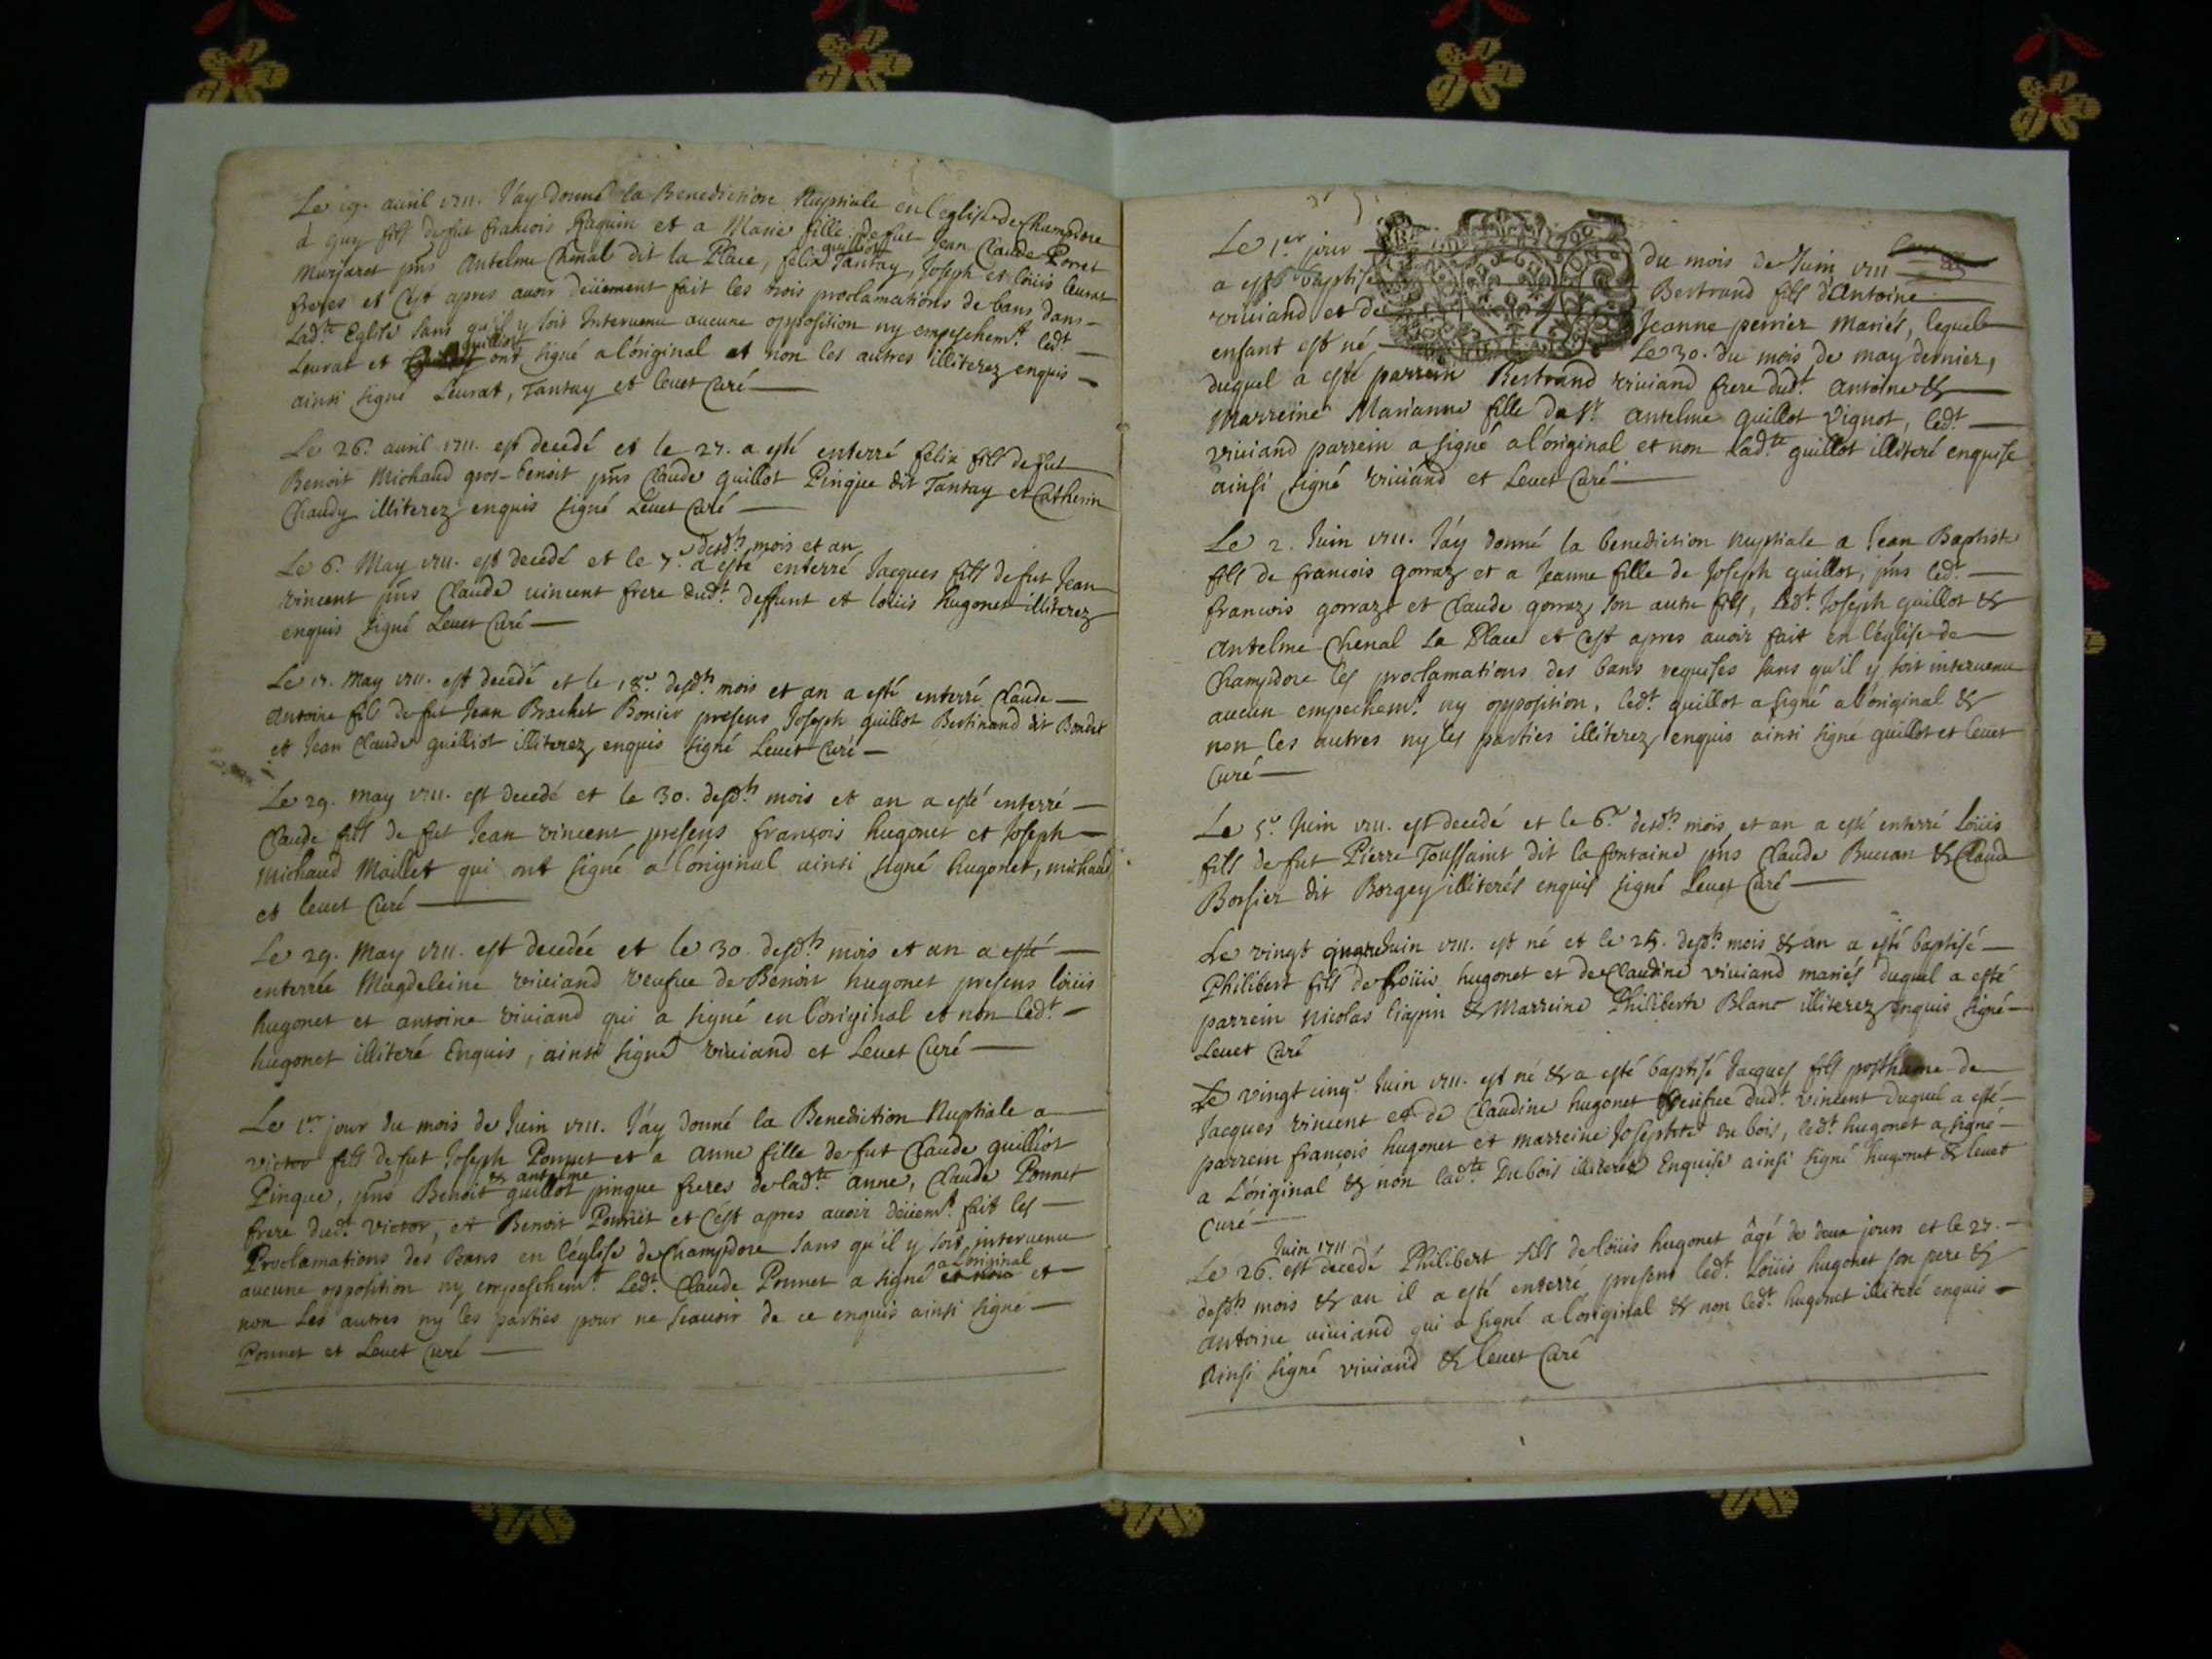 Le 19. auril 1711. J'ay donné la Benediction Nuptiale en l'eglise de Champdore
à guy fils de fut francois Paquin et a Marie fille de fut Jean Claude Porret
Murjaret pns Antelme Chenal dit la Place, felix guilliot Tantay, Joseph et loüis leurat
freres et c'est apres auoir deüement fait les trois proclamations de bans dans-
Lad.te Eglise sans qu'il y soit Interuenu aucune opposition ny empeschem.t led.t
Leurat et guilliot ont signé a l'original et non les autres illiterez enquis
ainsi signé Leurat, Tantay et leuet Curé
Le 26. auril 1711. est decedé et le 27. a esté enterré felix fils de fut
Benoit Michaud gros-benoit pns Claude guillot Pingue dit Tantay et Catherin
Chaudy illiterez enquis signé Leuet Curé
Le 6. May 1711. est decedé et le 7.e desd.ts mois et an a esté enterré Jacques fils de fut Jean
vincent pns Claude vincent frere dud.t deffunt et loüis hugonet illiterez
enquis signé Leuet Curé
Le 17. May 1711. est decedé et le 18.e desd.ts mois et an a esté enterré Claude
Antoine fils de fut Jean Brachet Bonier presens Joseph guillot Bertinand dit Bondet
et Jean Claude guilliot illiterez enquis signé Leuet Curé
Le 29. may 1711. est decedé et le 30. desd.ts mois et an a esté enterré
Claude fils de fut Jean vincent presens françois hugonet et Joseph
Michaud Maillet qui ont signé a l'original ainsi signé hugonet, michaud
et leuet Curé
Le 29. May 1711. est decedée et le 30. desd.ts mois et an a esté
enterrée Magdeleine viuiand veufue de Benoit hugonet presens loüis
hugonet et antoine viuiand qui a signé en l'original et non led.t
hugonet illiteré Enquis, ainsi signé viuiand et Leuet Curé
Le 1.er jour du mois de Juin 1711. J'ay donné la Benediction Nuptiale a
victor fils de fut Joseph Ponnet et a anne fille de fut Claude guilliot
Pingue, pns Benoit & antelme guillot pingue freres de lad.te anne, Claude Ponnet
frere dud.t victor, et Benoit Ponnet et c'est apres auoir deüem.t fait les
Proclamations des Bans en l'église de Champdore sans qu'il y soit interuenu
aucune opposition ny empeschem.t Led.t Claude Ponnet a signé a L'original et non et
non Les autres ny les parties pour ne scauoir de ce enquis ainsi signé
Ponnet et Leuet Curé
Le 1.er jour du mois de Juin 1711
a esté baptisé Bertrand fils d'Antoine
viuiand et de Jeanne perrier Mariés, lequel
enfant est né Le 30. du mois de may dernier,
duquel a esté parrein Bertrand viuiand frere dud.t antoine &
Marreine Marianne fille de s.r antelme guillot vignot, led.t
viuiand parrein a signé a l'original et non lad.te guillot illiteré enquise
ainsi signé viuiand et Leuet Curé
Le 2. Juin 1711. J'ay donné la benediction nuptiale a Jean Baptiste
fils de francois gorraz et a Jeanne fille de Joseph guillot, pns led.t
francois gorraz et Claude gorraz son autre fils, Led.t Joseph guillot &
antelme Chenal La Place et c'est apres auoir fait en l'église de
Champdore les proclamations des bans requises sans qu'il y soit interuenu
aucun empechem.t ny opposition, led.t guillot a signé a l'original &
non les autres ny les parties illiterez enquis ainsi signé guillot et leuet
Curé
Le 5.e Juin 1711. est decedé et le 6.e desd.ts mois et an a esté enterré Loüis
fils de fut Pierre Toussaint dit la fontaine pns Claude Buuan & Claude
Borsier dit Borgey illiterés enquis signé Leuet Curé
Le vingt quatre Juin 1711. est né et le 25. desd.ts mois & an a esté baptisé
Philibert fils de Loüis hugonet et de Claudine viuiand mariés duquel a esté
parrein Nicolas liapin & Marreine Philiberte Blanc illiterez enquis signé
Leuet Curé
Le vingt cinq.e Juin 1711. est né & a esté baptisé Jacques fils posthume de
Jacques vincent et de Claudine hugonet veufue dud.t vincent duquel a esté
parrein françois hugonet et marreine Josephte du bois, led.t hugonet a signé
a L'original & non lad.te Du bois illiterée Enquise ainsi signé hugonet & leuet
Curé
Le 26. Juin 1711 est decedé Philibert fils de loüis hugonet âgé de deux jours et le 27.
desd.ts mois & an il a esté enterré presens led.t Loüis hugonet son pere &
antoine viuiand qui a signé a l'original & non led.t hugonet illiteré enquis
Ainsi signé viuiand & leuet Curé